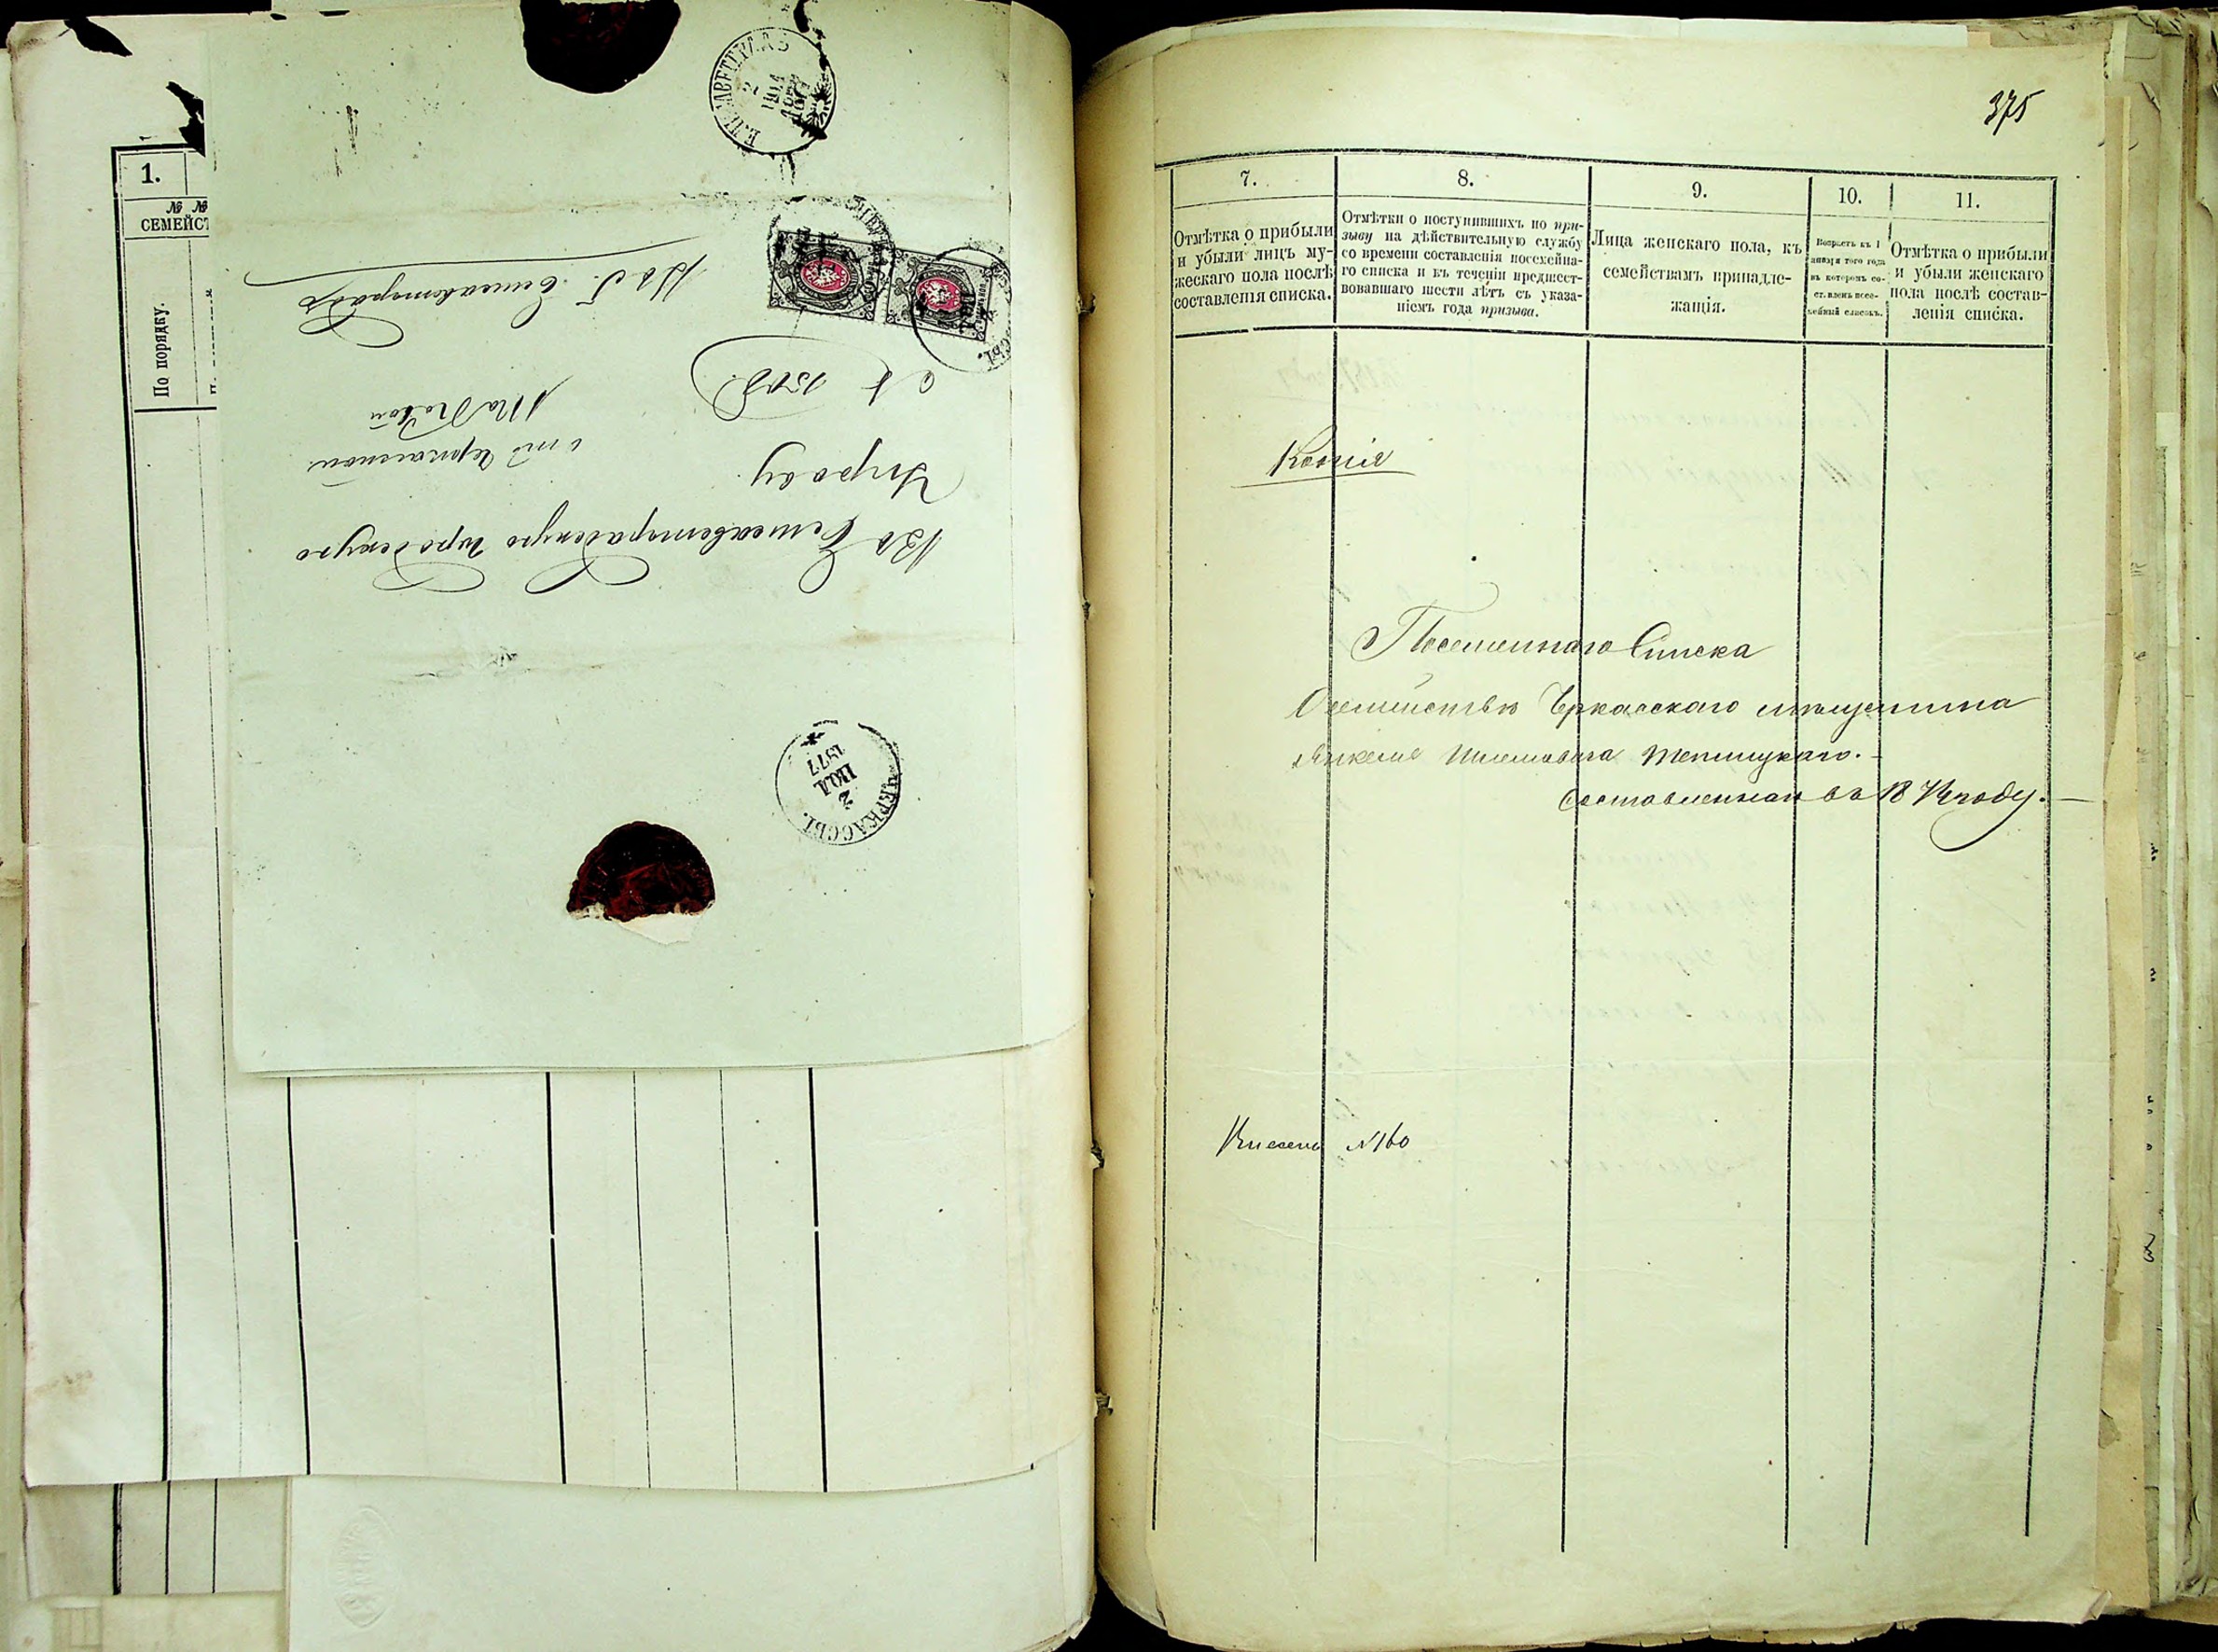 1.
№ №
СЕМЕЙСТ
По порядку.
ЕЛИСАВЕТГРАДЪ
2
ІЮЛ
1877
Въ Елисаветградскую Городскую
Управу
отъ Черкасской
№ 1508
Въ Г. Елисаветградъ
ЧЕРКАССЫ.
2
ІЮЛ
1877
375
7.
Отмѣтка о прибыли
и убыли лицъ му-
жескаго пола послѣ
составленія списка.
8.
Отмѣтки о поступившихъ по при-
зыву на дѣйствительную службу
со времени составленія посемейна-
го списка и къ теченіи предшест-
вовавшаго шести лѣтъ съ указа-
ніемъ года призыва.
9.
Лица женскаго пола, къ
семействамъ принадле-
жащія.
10.
Возрастъ къ 1
января того года
въ которомъ со-
ставленъ посе-
мейный списокъ.
11.
Отмѣтка о прибыли
и убыли женскаго
пола послѣ состав-
ленія списка.
Копія
Посемейнаго Списка
О семействѣ Черкасского мѣщанина
Янкеля Шлемовича
составленная въ 18 году.
Внесенъ №160